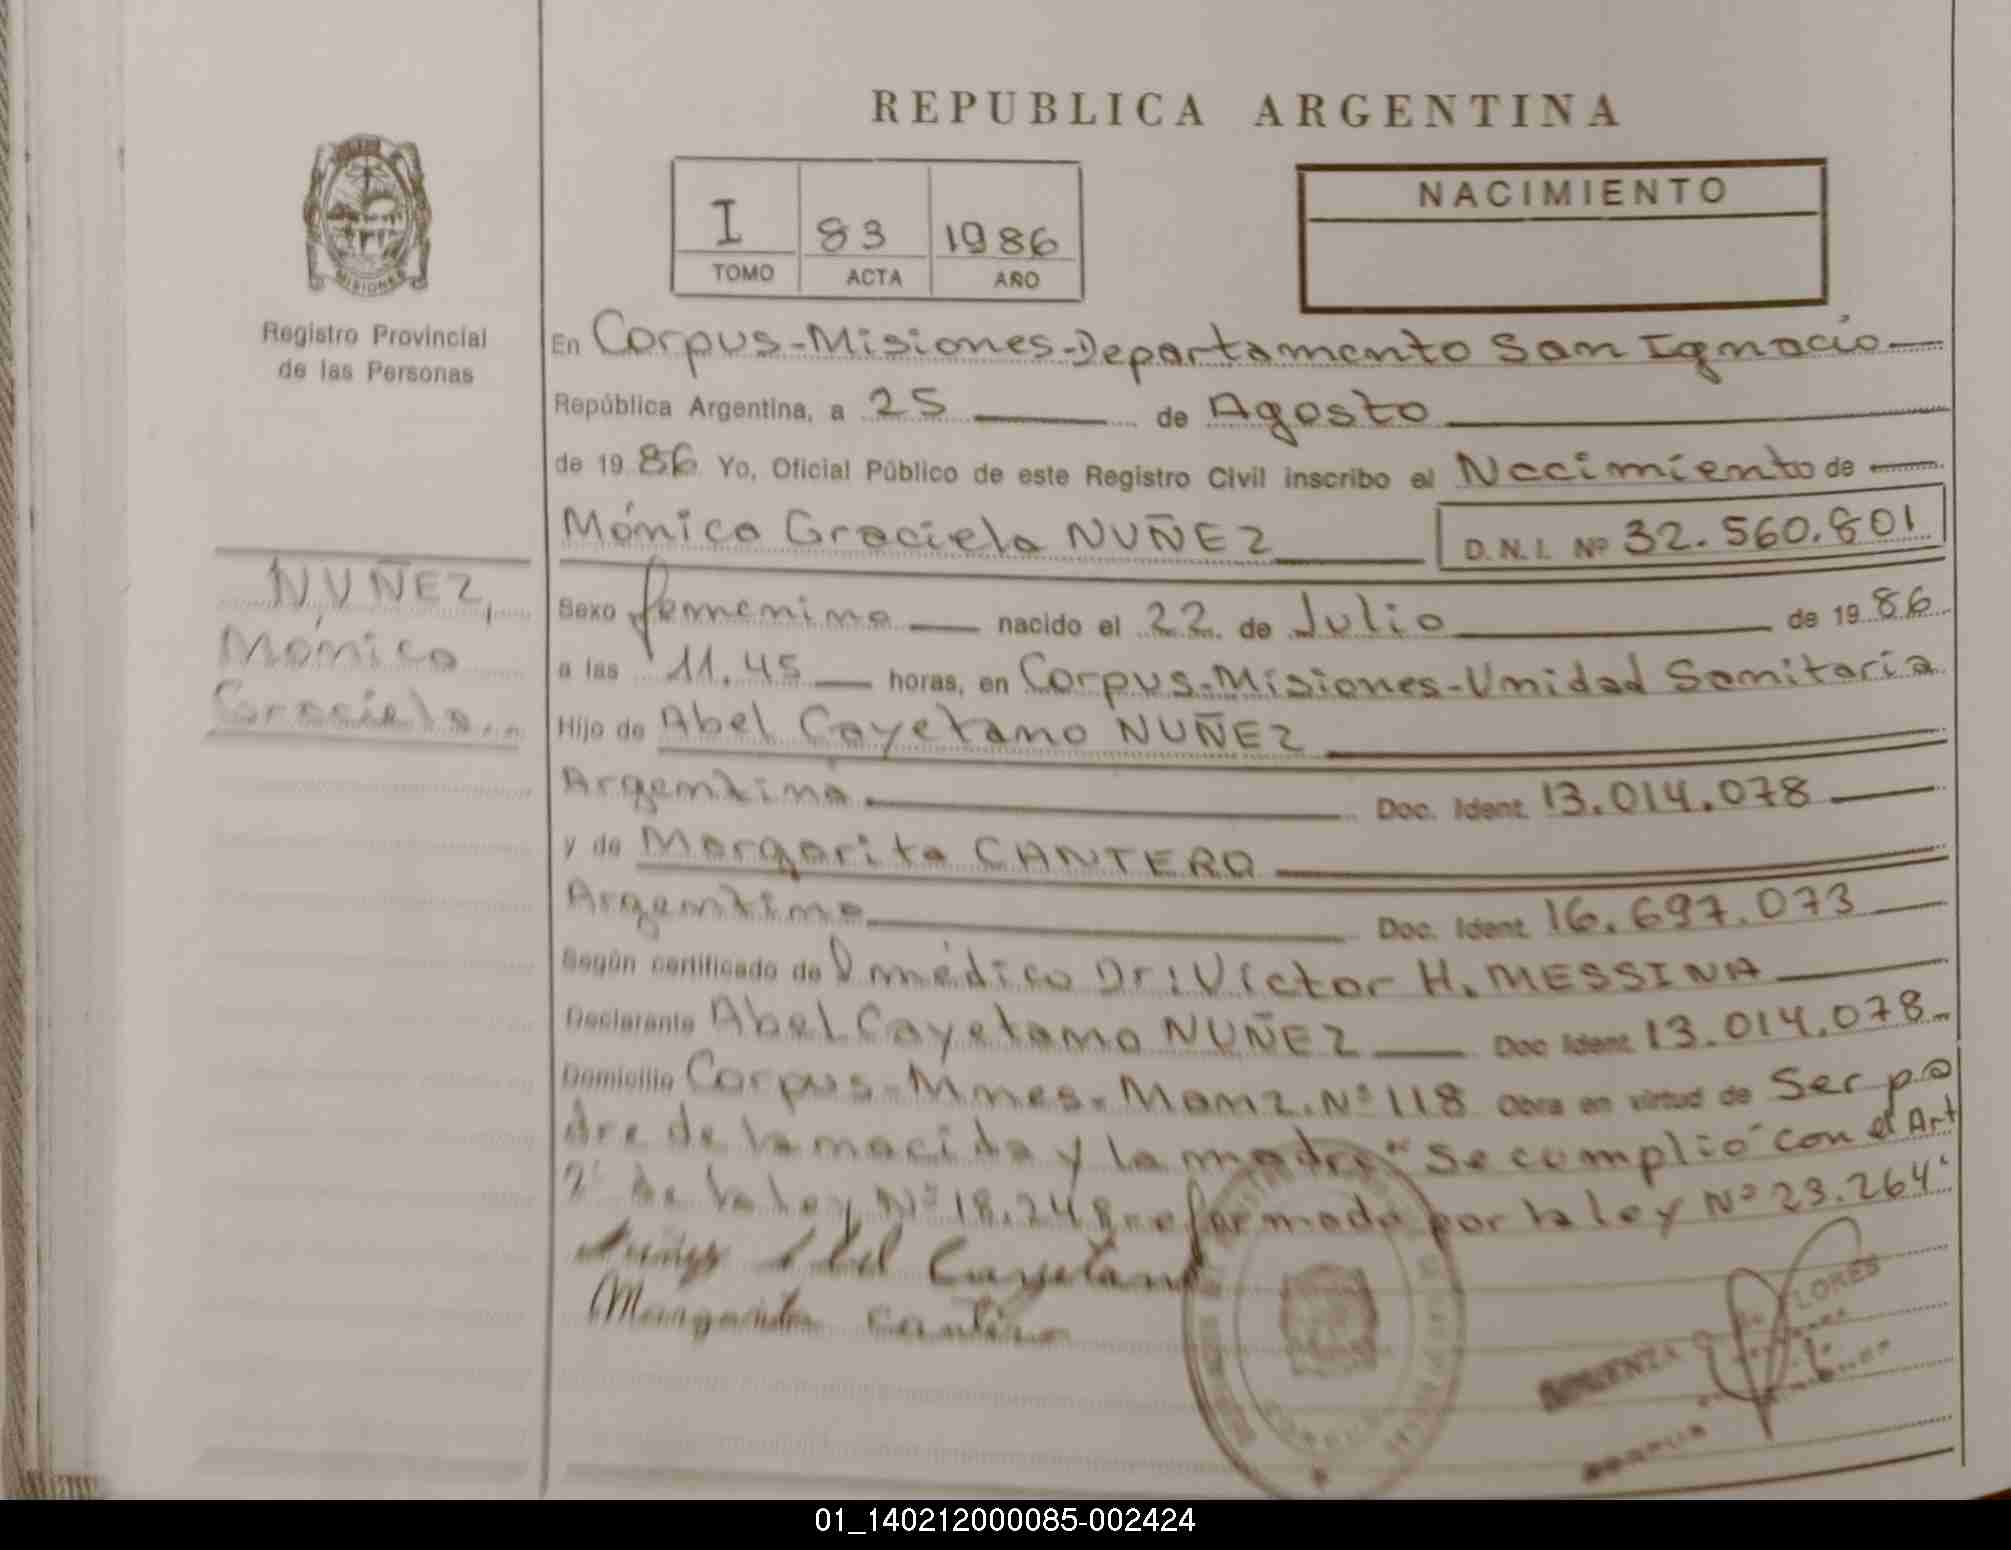 REPUBLICA ARGENTINA
MISIONES
Registro Provincial
de las Personas
I 83 1986
TOMO ACTA AÑO
NACIMIENTO
En Corpus-Misiones-Departamento San Ignacio
República Argentina, a 25 de Agosto
de 1986 Yo, Oficial Público de este Registro Civil inscribo el Nacimiento de
Mónica Graciela NUÑEZ D.N.I. Nº 32.560.801
NUÑEZ,
Mónica
Graciela
Sexo femenino nacido el 22 de Julio de 1986
a las 11.45 horas, en Corpus-Misiones-Unidad Sanitaria
Hijo de Abel Cayetano NUÑEZ
Argentina Doc. Ident. 13.014.078
y de Margarita CANTERO
Argentina Doc. Ident. 16.697.073
Según certificado de l médico Dr: Victor H. MESSINA
Declarante Abel Cayetano NUÑEZ Doc Ident. 13.014.078
Domicilio Corpus-Mnes-Manz. Nº 118 Obra en virtud de Ser pa
dre de la nacida y la madre "Se cumplió con el Art
2º de la ley Nº 18.248 reformada por la ley Nº 23.264"
Nuñez Abel Cayetano
Margarita Cantero
FLORES
01_140212000085-002424